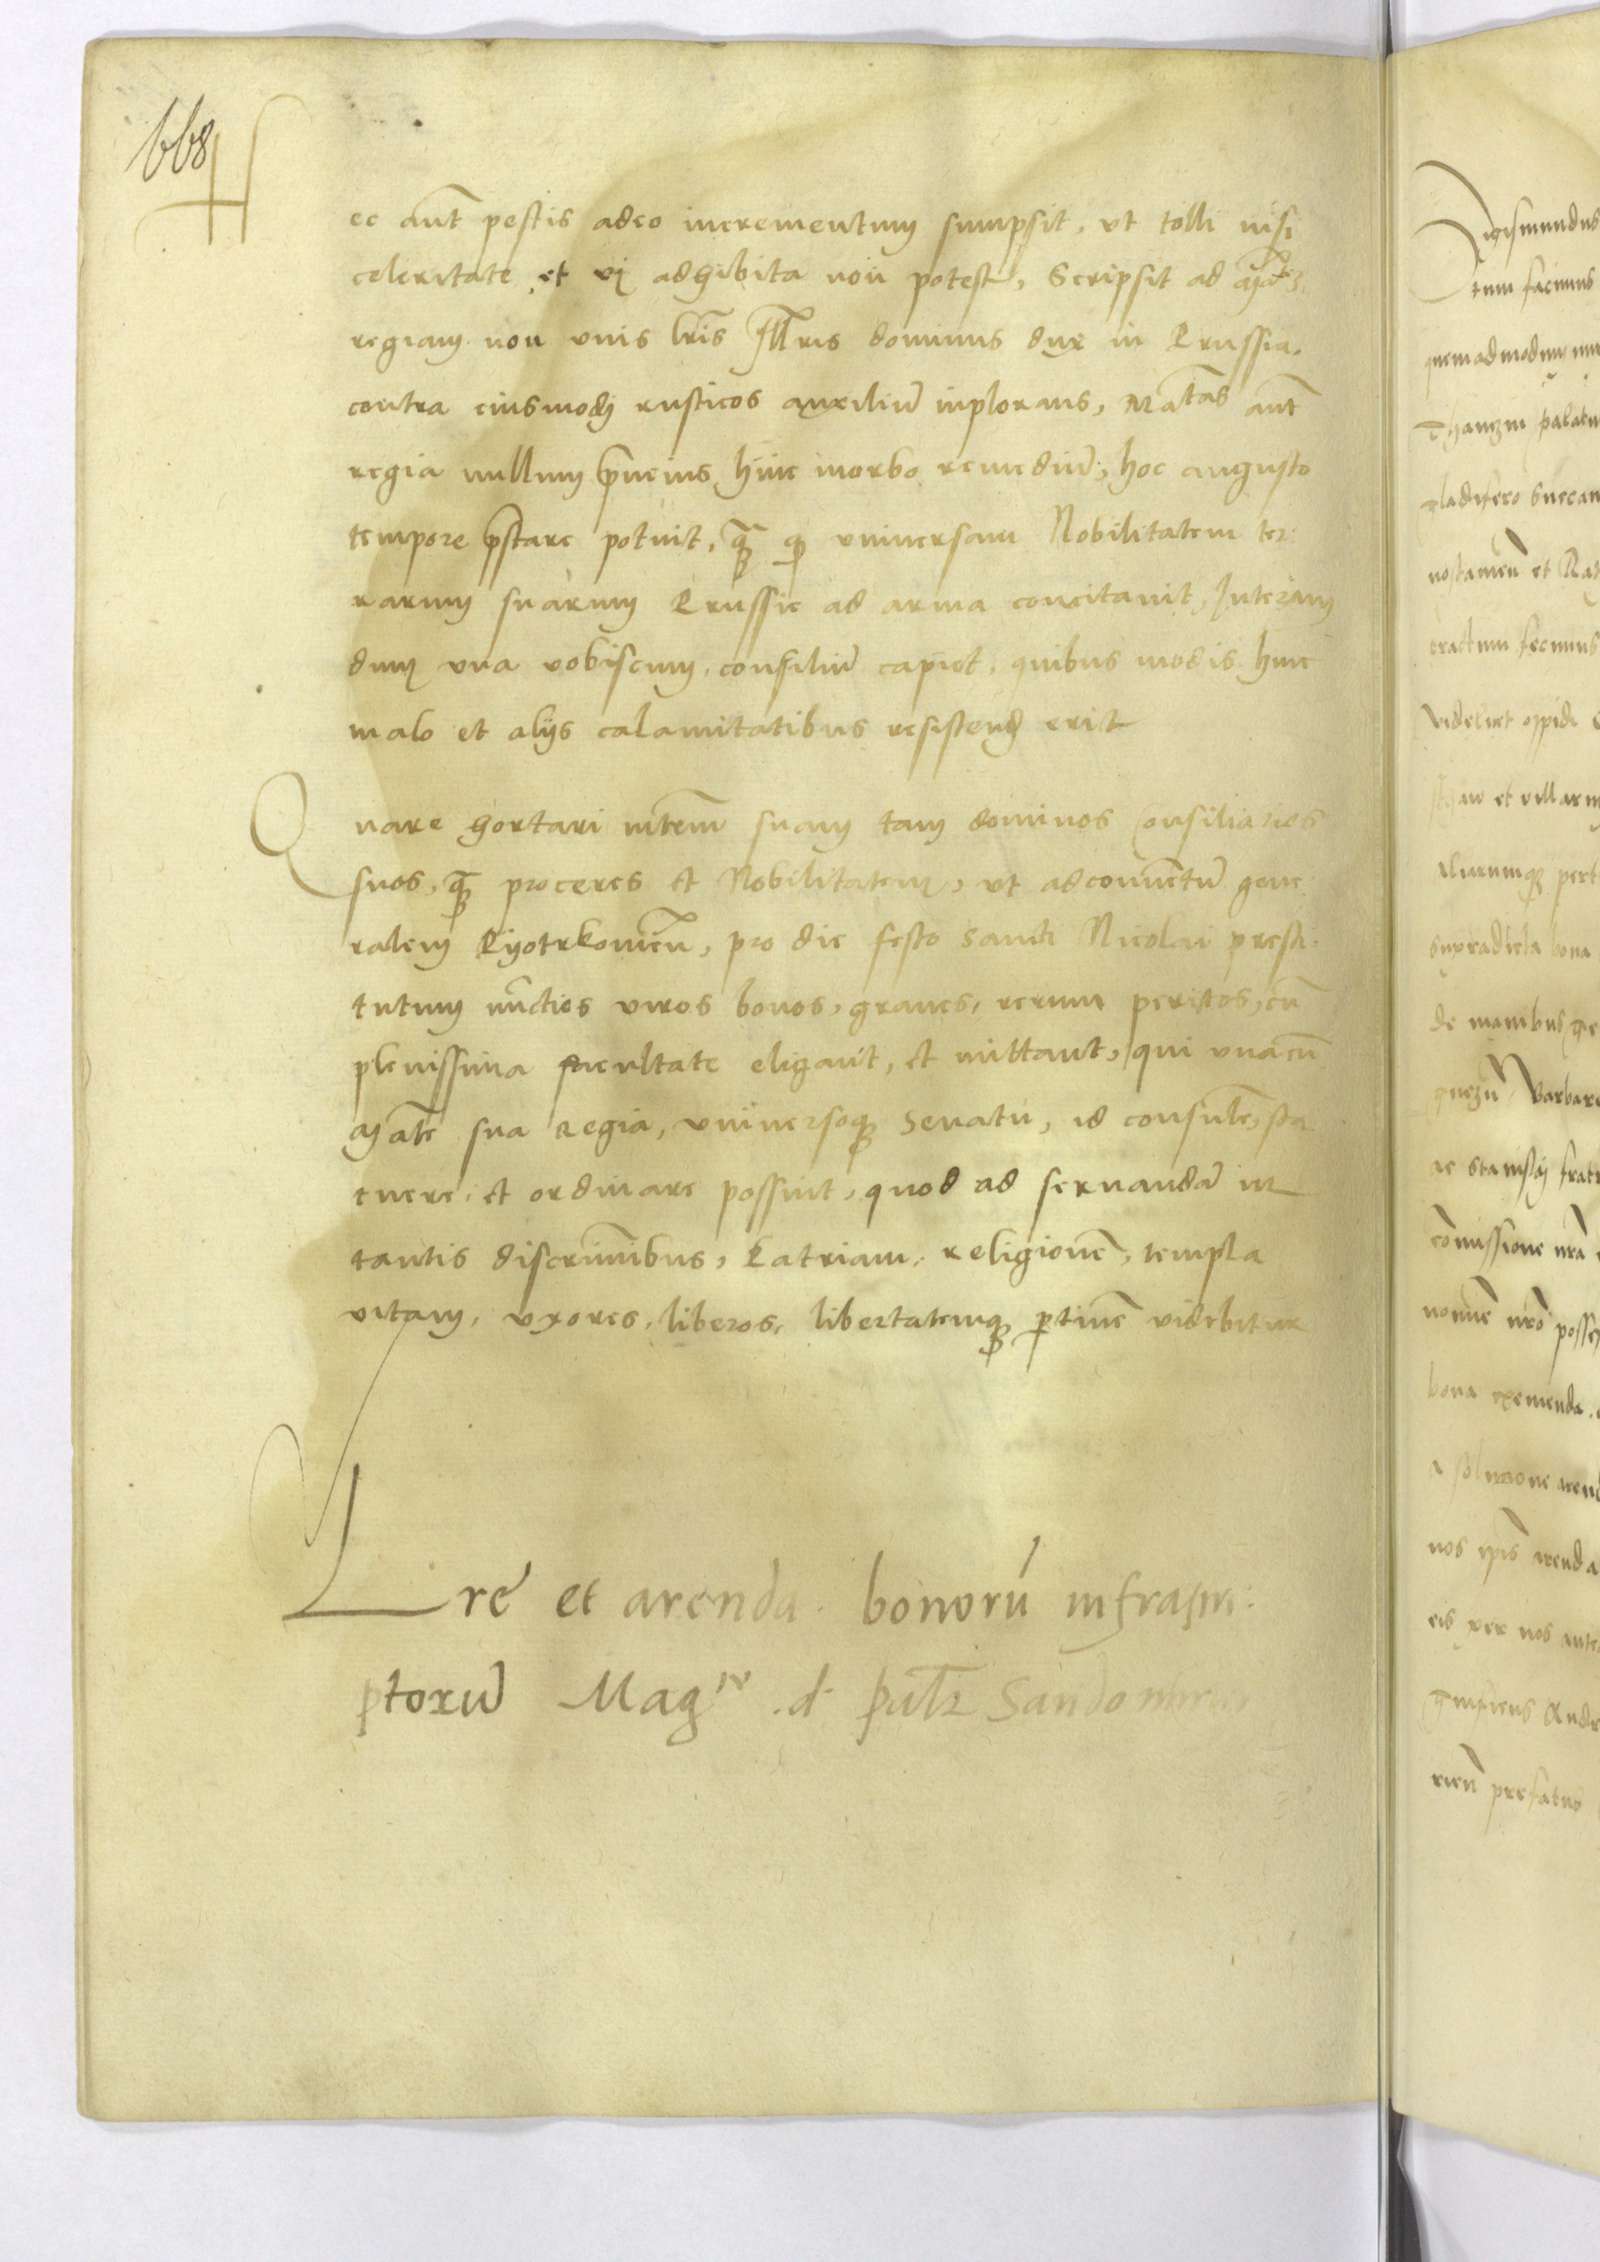 668
Hec aut̄ pestis adeo incrementum sumpsit, vt tolli nisi
celeritate et vi adhibita non potest, Scripsit ad M̄tez
regiam non vnis lr̄is Ill̄ris dominus dux in Prussia
contra eiusmodi rusticos auxiliū inplorans, M̄atas aut̄
regia nullum huic morbo remediū, hoc angusto
tempore p̄stare potuit, qȝ̄ qp vniuersam Nobilitatem ter:
rarum suarum Prussie ad arma concitauit, Interim
dum vna vobiscum consiliū capiet, quibus modis huic
malo et alijs calamitatibus resistend erit
Quare hortari m̄tem suam tam dominos Consiliarios
suos, qȝ̄ proceres et Nobilitatem, vt ad conuentū gene
ralem Pijotrkouien̄, pro die festo sancti Nicolai presti:
tutum nūctios viros bonos, graues, rerum peritos, cū
plenissima facultate eligant, et mittant, qui vnacū
M̄ate sua Regia, vniuersoqȝ Senatu, id consule, sta
tuere, et ordinare possint, quod ad seruandā in
tantis discriminibus, Patriam, religionē, templa
vitam, vxores, liberos, libertatemqȝ ptinē videbitur
Lrē et arenda bonorū infrascri:
ptorū Mag^ci d. palt̄ Sandomirien
Sigismundus
tum facimus
quemadmodum
palatin
gladifero
nostamen̄ et
tractum fecimus
videlicet oppidi
et villarum
aliarumqȝ pert
supradicta bona
de manibus
Barbare
ac stanislaj fratr
cōmissione nrā
nomine nrō posse
bona exemenda
a solutione arend
nos ip̄is arenda
eis per nos ante
Andr
rien̄ prefatus